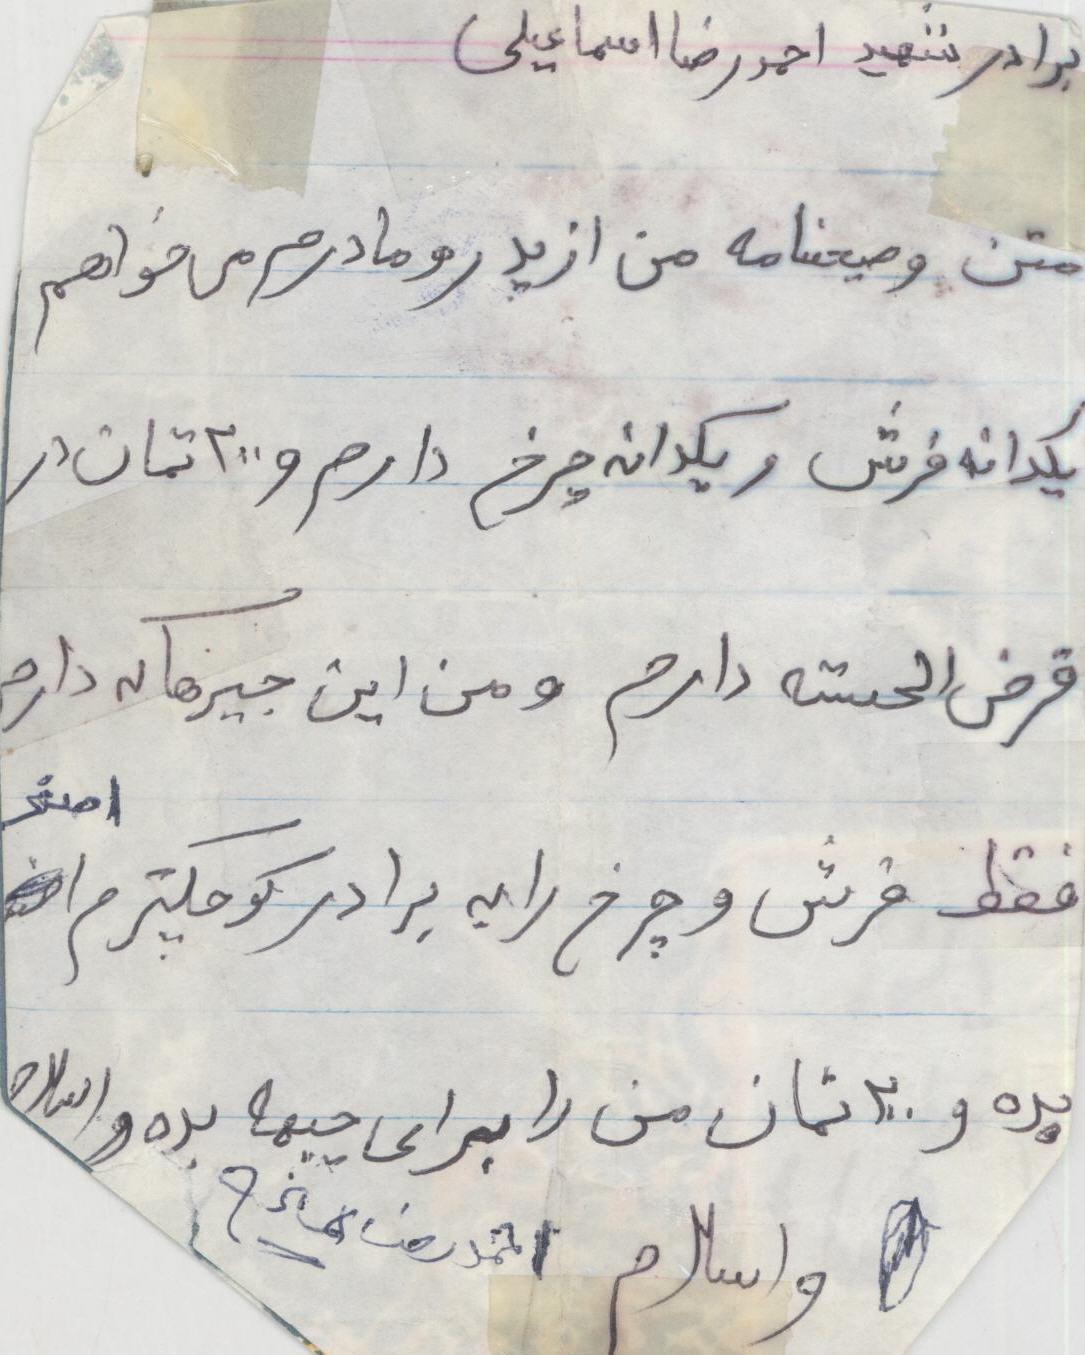 برادر شهید احمد رضا اسماعیلی
متن وصیتنامه من از پدر و مادرم می خواهم
یکدانه فرش و یکدانه چرخ دارم و ۲۰۰ تمان در
قرض الحسنه دارم و من این چیزها که دارم
اصغر
فقط فرش و چرخ را به برادر کوچکترم
بده و ۲۰۰ تمان من را برای جبهه بده والسلام
والسلام احمد رضا